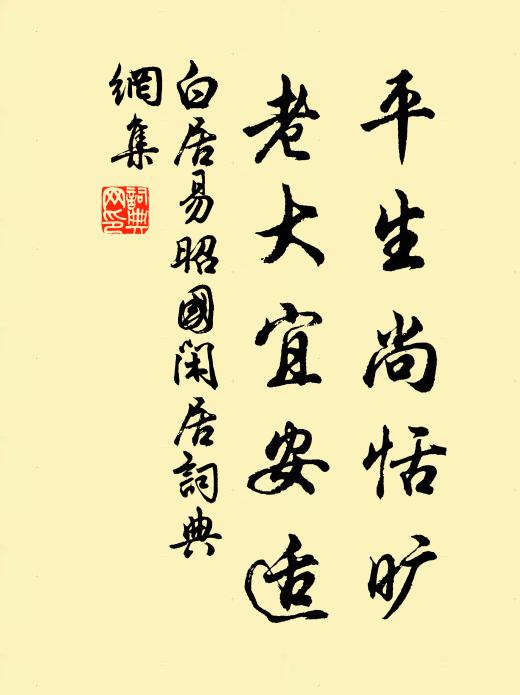 平生尚恬旷
老大宜安适
白居易昭國闲居詞典
網集
詞典
网印